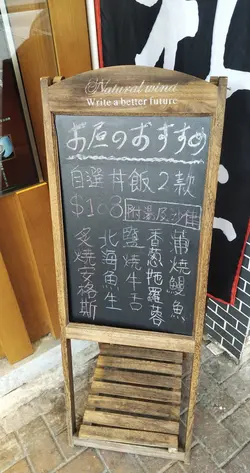 Natural wind
Write a better future
お昼のおすすめ
自選丼飯2款
$108 附湯及沙律
蒲燒鰻魚
香蔥拖羅蓉
鹽燒牛舌
北海魚生
炙燒安格斯